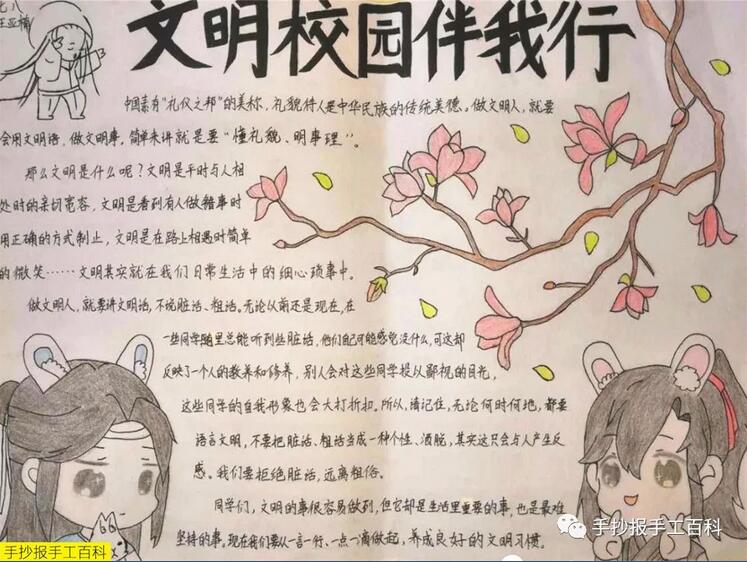 七八
文明校园伴我行
中国素有“礼仪之邦”的美称，礼貌待人是中华民族的传统美德。做文明人，就要
会用文明语，做文明事，简单来讲就是要“懂礼貌、明事理”。
那么文明是什么呢？文明是平时与人相
处时的亲切宽容，文明是看到有人做错事时
用正确的方式制止，文明是在路上相遇时简单
的微笑……文明其实就在我们日常生活中的细心琐事中。
做文明人，就要讲文明话，不说脏话、粗话。无论从前还是现在，在
一些同学嘴里总能听到些脏话，他们自己可能感觉没什么，可这却
反映了一个人的教养和修养，别人会对这些同学投以鄙视的目光，
这些同学的自我形象也会大打折扣。所以，请记住，无论何时何地，都要
语言文明，不要把脏话、粗话当成一种个性、洒脱，其实这只会与人产生反
感。我们要拒绝脏话，远离粗俗。
同学们，文明的事很容易做到，但它却是生活里重要的事，也是最难
坚持的事。现在我们要从一言一行、一点一滴做起，养成良好的文明习惯。
手抄报手工百科
手抄报手工百科